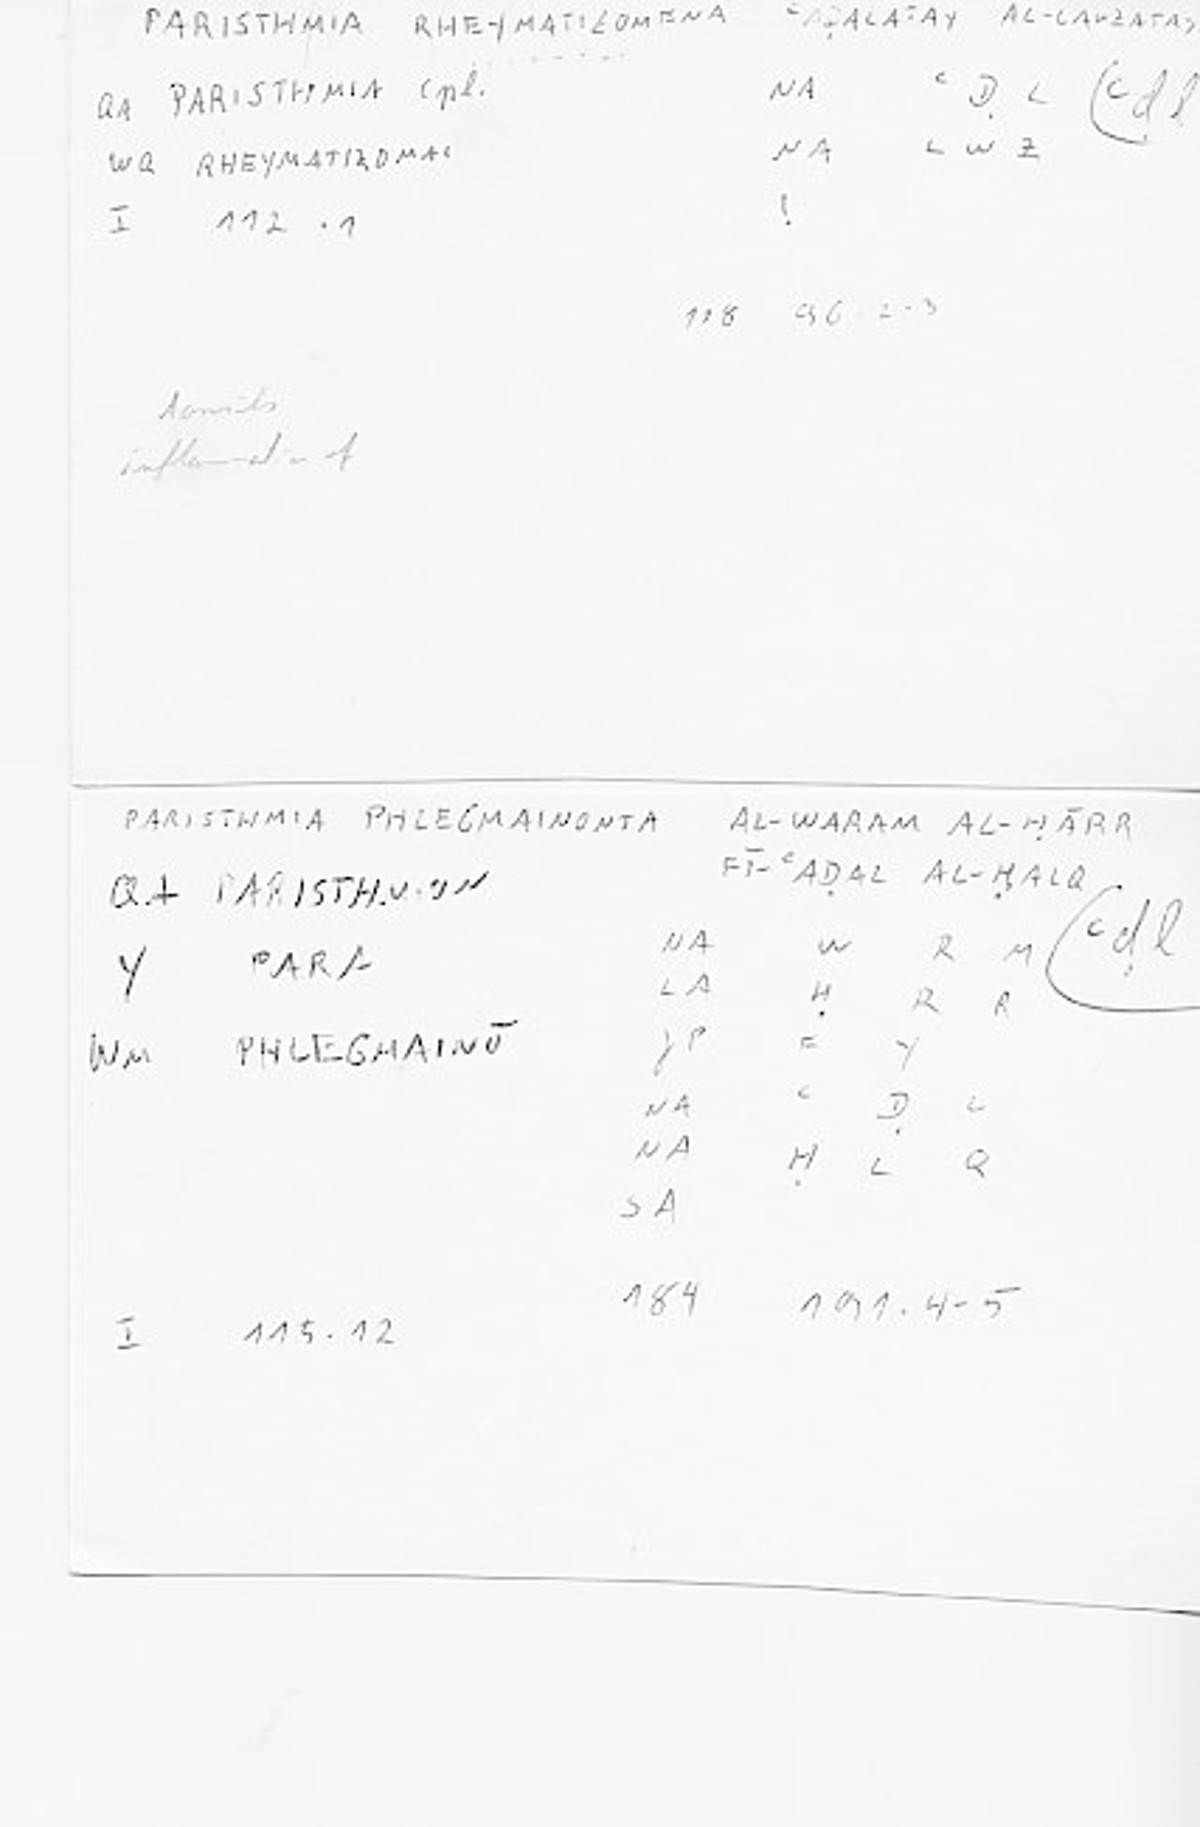 PARISTHMIA RHEYMATIZOMENA ʿAḌALATAY AL-LAWZATAY
QA PARISTHMIA (pl. NA ʿ Ḍ L (ʿḍl
WQ RHEYMATIZOMAI NA L W Z
I 112.1 !
118 96.2-3
tonsils
PARISTHMIA PHLEGMAINONTA AL-WARAM AL-ḤĀRR
FĪ-ʿAḌAL AL-ḤALQ
QA PARISTHMION (ʿḍl
NA W R M
Y PARA
LA Ḥ R R
WM PHLEGMAINŌ
JP F Y
NA ʿ Ḍ L
NA Ḥ L Q
SA
184 191.4-5
I 115.12